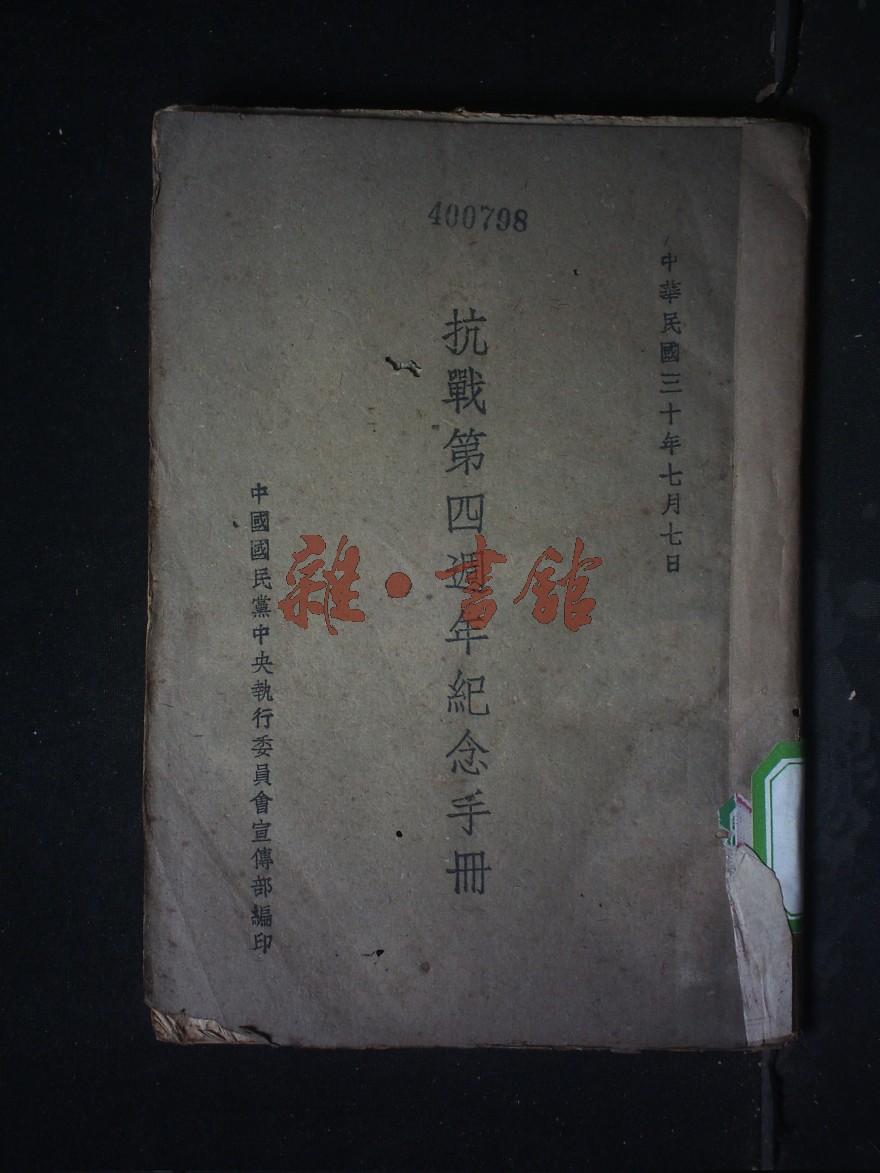 400798
中華民國三十年七月七日
抗戰第四週年紀念手冊
中國國民黨中央執行委員會宣傳部編印
雜·書館